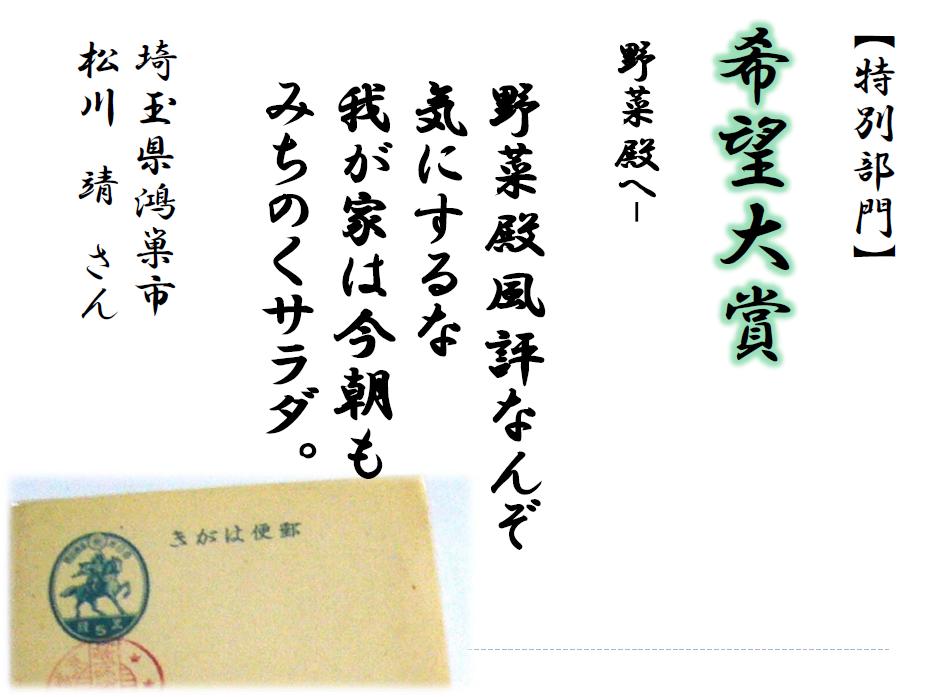 【特別部門】
希望大賞
野菜殿へ―
野菜殿風評なんぞ
気にするな
我が家は今朝も
みちのくサラダ。
埼玉県鴻巣市
松川　靖　さん
きがは便郵